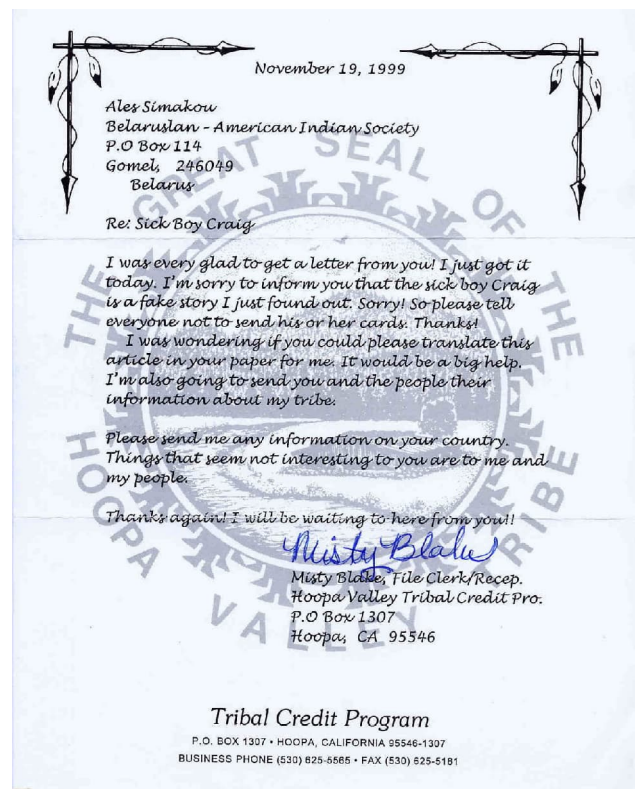 November 19, 1999
Ales Simakou
Belaruslan - American Indian Society
P.O Box 114
Gomel, 246049
Belarus
Re: Sick Boy Craig
I was every glad to get a letter from you! I just got it
today. I'm sorry to inform you that the sick boy Craig
is a fake story I just found out. Sorry! So please tell
everyone not to send his or her cards. Thanks!
I was wondering if you could please translate this
article in your paper for me. It would be a big help.
I'm also going to send you and the people their
information about my tribe.
Please send me any information on your country.
Things that seem not interesting to you are to me and
my people.
Thanks again! I will be waiting to here from you!!
Misty Blake
Misty Blake, File Clerk/Recep.
Hoopa Valley Tribal Credit Pro.
P.O Box 1307
Hoopa, CA 95546
THE GREAT SEAL OF THE
HOOPA VALLEY TRIBE
Tribal Credit Program
P.O. BOX 1307 • HOOPA, CALIFORNIA 95546-1307
BUSINESS PHONE (530) 625-5565 • FAX (530) 625-5181